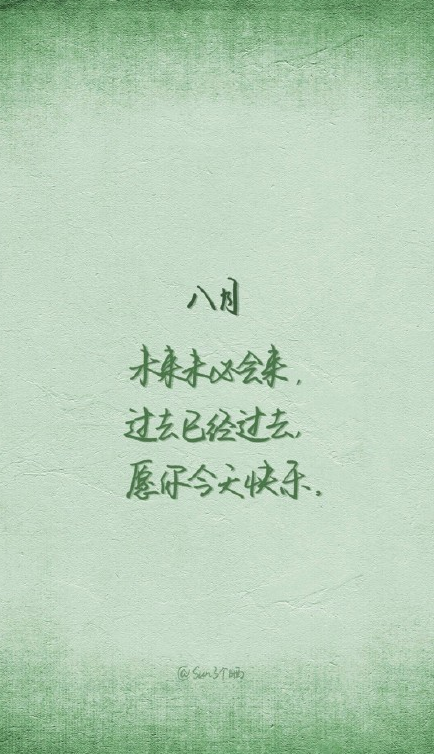 八月
未来未必会来，
过去已经过去，
愿你今天快乐。
@Sun3个晒